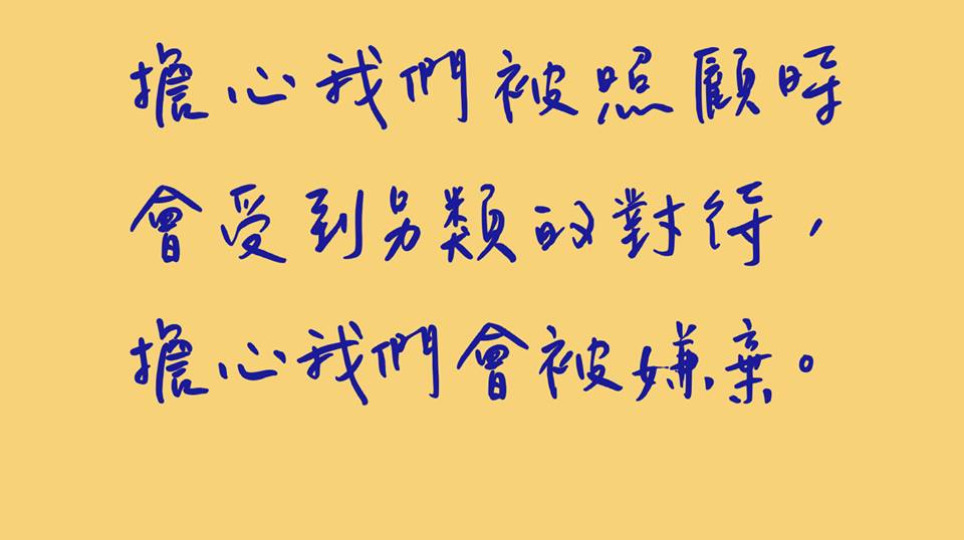 擔心我們被照顧時
會受到另類的對待，
擔心我們會被嫌棄。